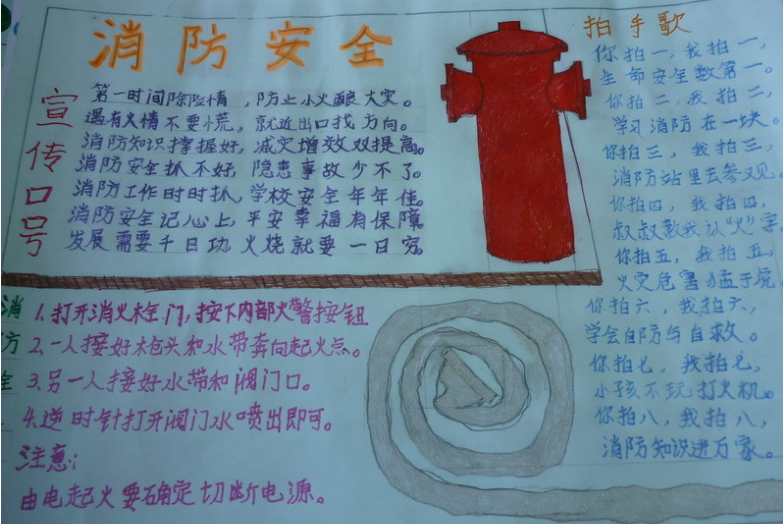 消防安全
宣传口号
第一时间除险情，防止小火酿大灾。
遇有火情不要慌，就近出口找方向。
消防知识掌握好，减灾增效双提高。
消防安全抓不好，隐患事故少不了。
消防工作时时抓，学校安全年年佳。
消防安全记心上，平安幸福有保障。
发展需要千日功，火烧就要一日穷。
拍手歌
你拍一，我拍一，
生命安全数第一。
你拍二，我拍二，
学习消防在一块。
你拍三，我拍三，
消防站里去参观。
你拍四，我拍四，
叔叔教我认“火”字。
你拍五，我拍五，
火灾危害猛于虎。
你拍六，我拍六，
学会自防与自救。
你拍七，我拍七，
小孩不玩打火机。
你拍八，我拍八，
消防知识进万家。
消
防
全
1.打开消火栓门，按下内部火警按钮
2.一人接好枪头和水带奔向起火点。
3.另一人接好水带和阀门口。
4.逆时针打开阀门水喷出即可。
注意：
由电起火要确定切断电源。